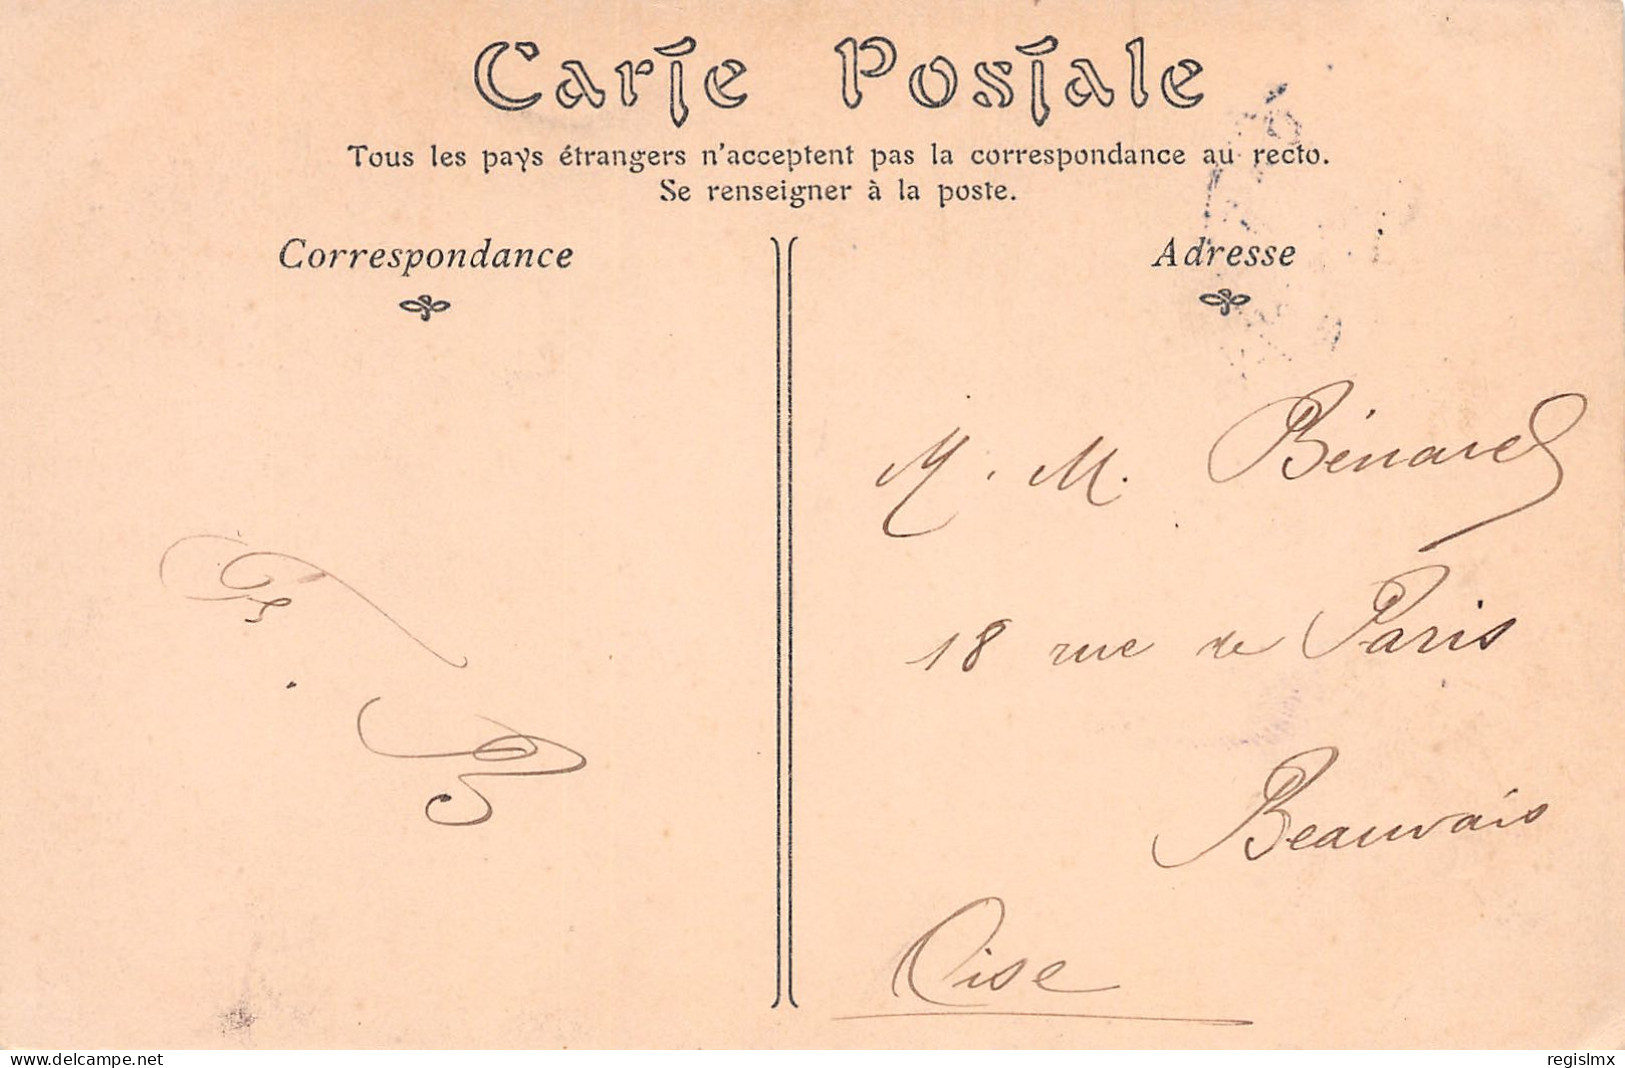 Carte Postale
Tous les pays étrangers n'acceptent pas la correspondance au recto.
Se renseigner à la poste.
Correspondance
Adresse
M. M. Bénard
18 rue de Paris
Beauvais
Oise
B
www.delcampe.net
regislmx